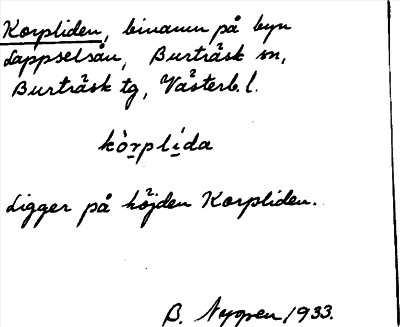 Korpliden, binamn på byn
Lappselsån, Burträsk sn,
Burträsk tg, Västerb. l.
kòrplída
Ligger på höjden Korpliden.
B. Nygren 1933.